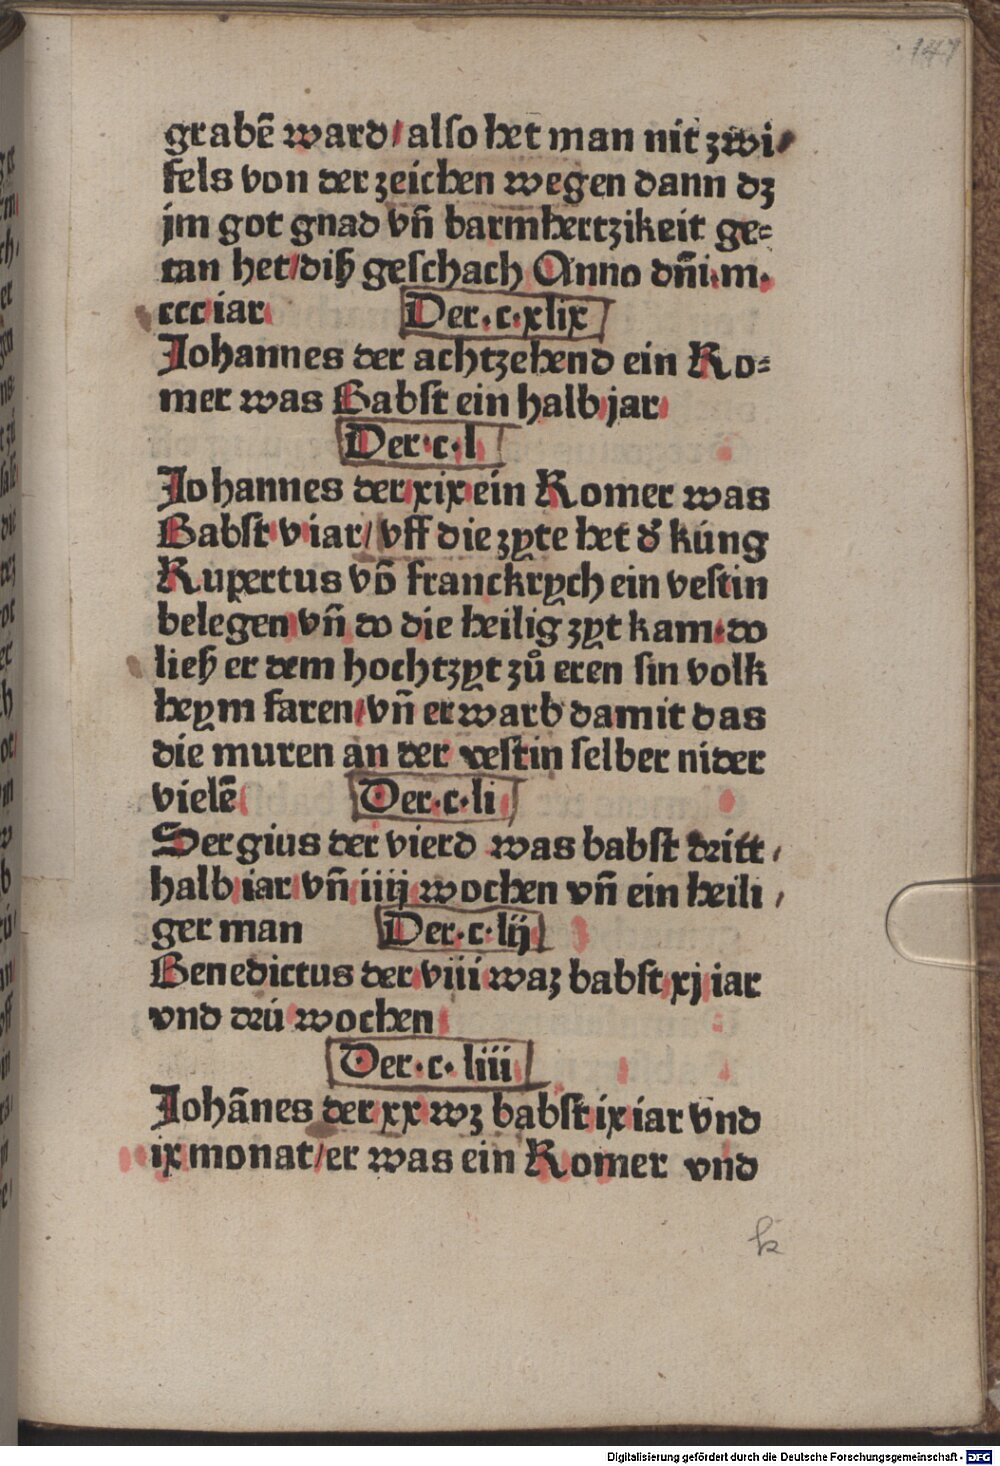 147
grabē ward/ also het man nit zwi/
fels von der zeichen wegen dann dz
jm got gnad vn̄ barmhertzikeit ge=
tan het/ diß geschach Anno dn̄i.m.
ccc iar
Der.c.xlix
Johannes der achtzehend ein Ro=
mer was Babst ein halb jar
Der.c.l
Johannes der xix ein Romer was
Babst v iar/ vff die zyte het d' kúng
Rupertus vō franckrych ein vestin
belegen vn̄ do die heilig zyt kam.do
ließ er dem hochtzyt zů eren sin volk
heym faren/ vn̄ er warb damit das
die muren an der vestin selber nider
vielē
Der.c.li
Sergius der vierd was babst dritt/
halb iar vn̄ iiij wochen vn̄ ein heili/
ger man
Der.c.lij
Benedictus der viii waz babst xj iar
vnd drú wochen
Der.c.liii
Johānes der xx wz babst ix iar vnd
ix monat/ er was ein Romer vnd
k
Digitalisierung gefördert durch die Deutsche Forschungsgemeinschaft - DFG